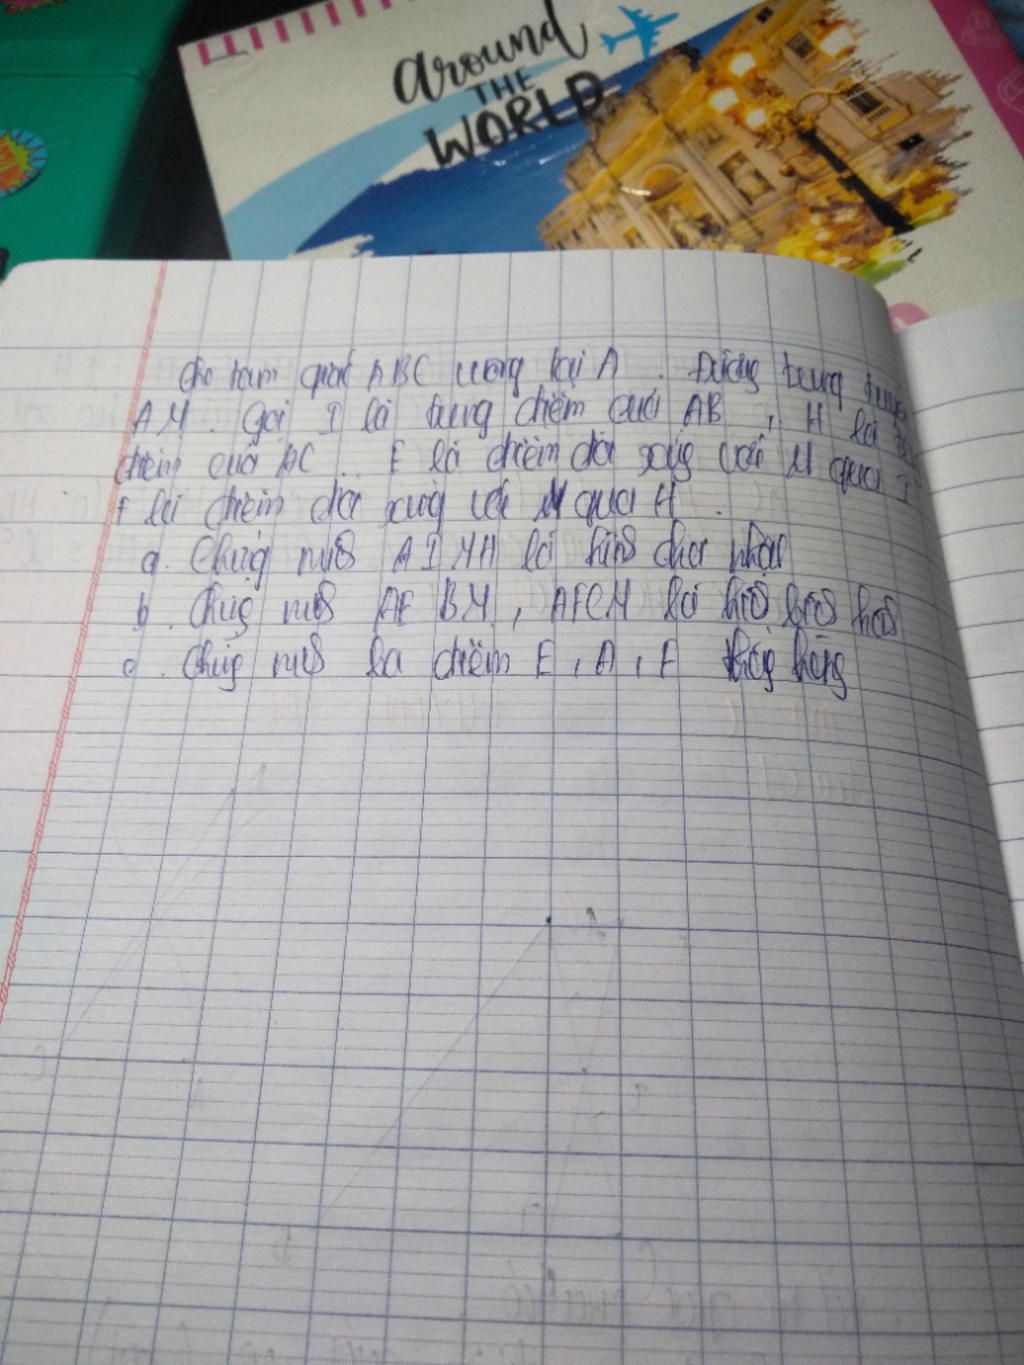 around
THE
WORLD
Cho tam giác ABC vuông tại A. Đường trung tuyến
AM. Gọi I là trung điểm của AB, H là
điểm của AC. E là điểm đối xứng với M qua I
F là điểm đối xứng với M qua H.
a. Chứng minh AIMH là hình chữ nhật
b. Chứng minh AEBM, AFCM là hình bình hành
c. Chứng minh ba điểm E, A, F thẳng hàng
A
B